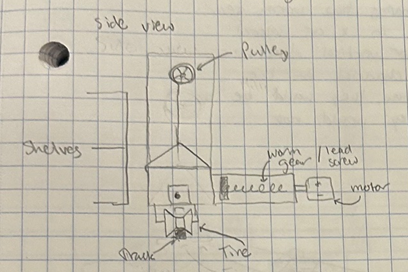 side view
Pulley
Shelves
worm
gear / lead
screw
motor
Track
Tire